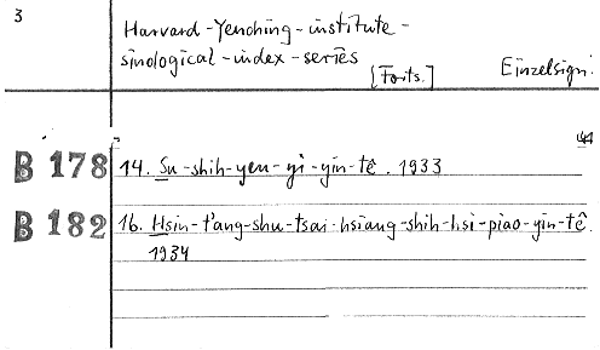 3
Harvard-Yenching-institute-
sinological-index-series
[Forts.] Einzelsign.
B 178 14. Su-shih-yen-yi-yin-tê. 1933
B 182 16. Hsin-t'ang-shu-tsai-hsiang-shih-hsi-piao-yin-tê.
1934